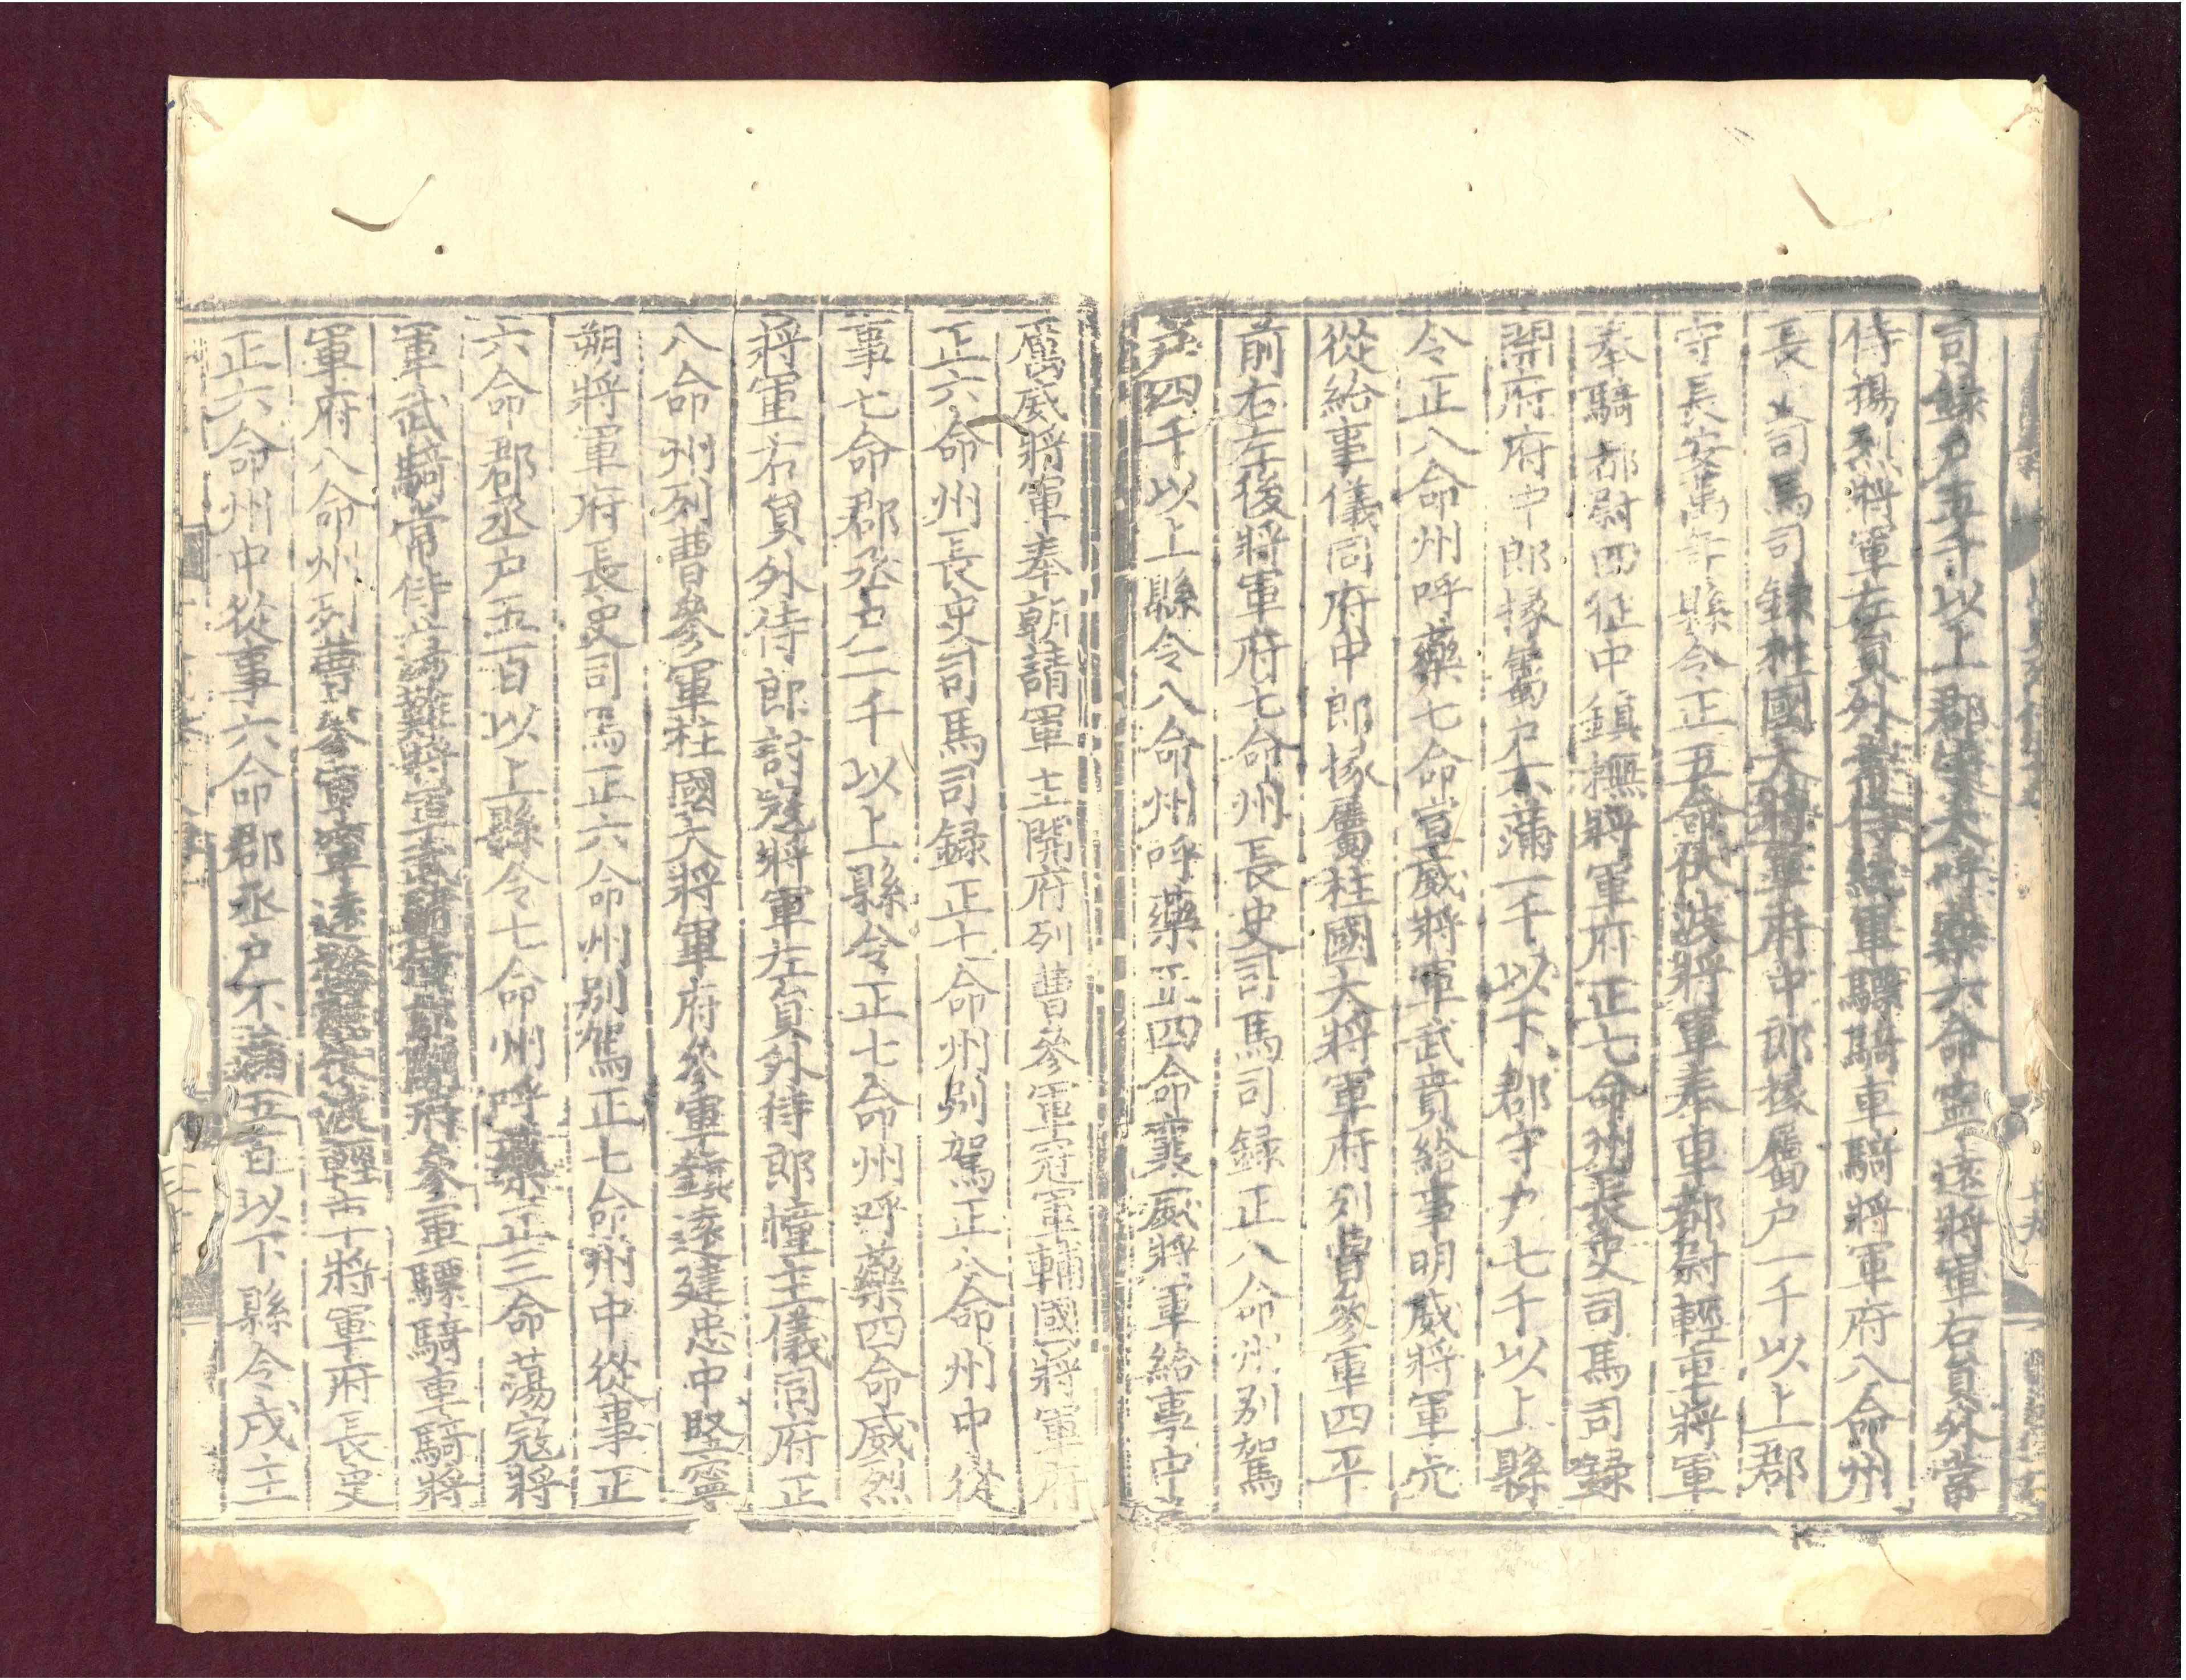 司錄戶五千以上郡守大呼藥六命寧遠將軍右員外常
侍揚烈將軍左員外常侍統軍驃騎車騎將軍府八命州
長史司馬司錄柱國大將軍府中郎掾屬户一千以上郡
守長安萬年縣令正五命伏波將軍奉車都尉輕車將軍
奉騎都尉四征中鎮撫將軍府正七命州長史司馬司錄
開府府中郎掾屬户不滿一千以下郡守户七千以上縣
令正八命州呼藥七命宣威將軍武賁給事明威將軍宂
從給事儀同府中郎掾屬柱國大將軍府列曹參軍四平
前右左後將軍府七命州長史司馬司錄正八命州別駕
户四千以上縣令八命州呼藥正四命襄威將軍給事中
厲威將軍奉朝請軍主開府列曹參軍冠軍輔國將軍府
正六命州長史司馬司録正七命州別駕正八命州中從
事七命郡丞户二千以上縣令正七命州呼藥四命威烈
將軍右員外侍郎討寇將軍左員外侍郎幢主儀同府正
八命州列曹參軍柱國大將軍府參軍鎮遠建忠中堅寧
朔將軍府長史司馬正六命州別駕正七命州中從事正
六命郡丞户五百以上縣令七命州呼藥正三命蕩寇將
軍武騎常侍蕩難將軍武騎侍郎開府參軍驃騎車騎將
軍府八命州列曹參軍寧遠揚烈伏波輕車將軍府長史
正六命州中從事六命郡丞户不滿五百以下縣令戍主